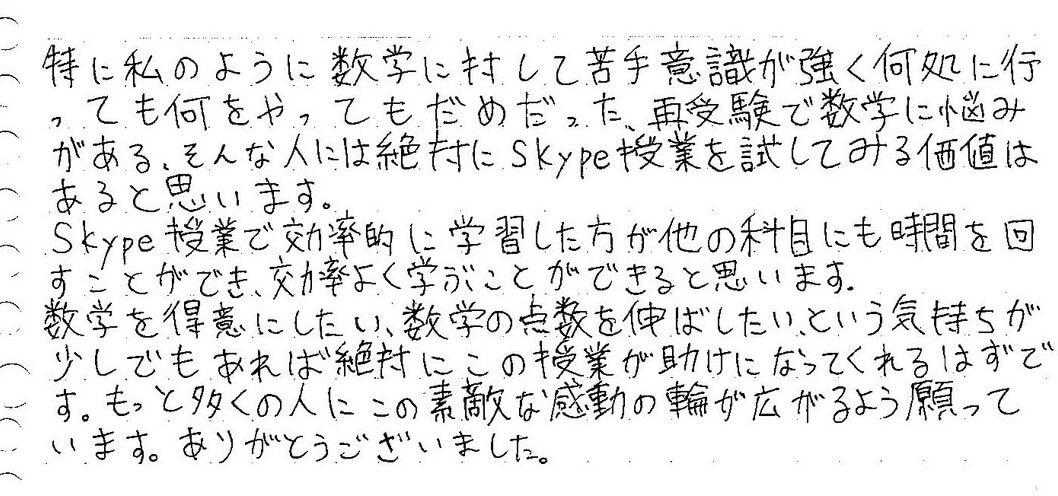 特に私のように数学に対して苦手意識が強く何処に行
っても何をやってもだめだった、再受験で数学に悩み
がある、そんな人には絶対にSkype授業を試してみる価値は
あると思います。
Skype授業で効率的に学習した方が他の科目にも時間を回
すことができ、効率よく学ぶことができると思います.
数学を得意にしたい、数学の点数を伸ばしたい、という気持ちが
少しでもあれば絶対にこの授業が助けになってくれるはずで
す。もっと多くの人にこの素敵な感動の輪が広がるよう願って
います。ありがとうございました。